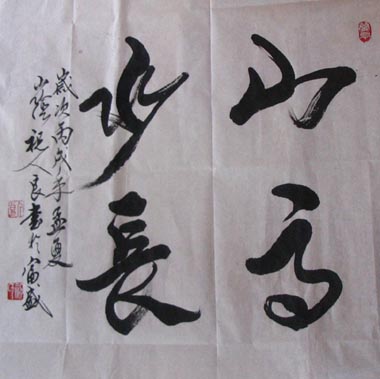 山高
水長
歲次丙戌年孟夏
山陰祝人良書於寅盛